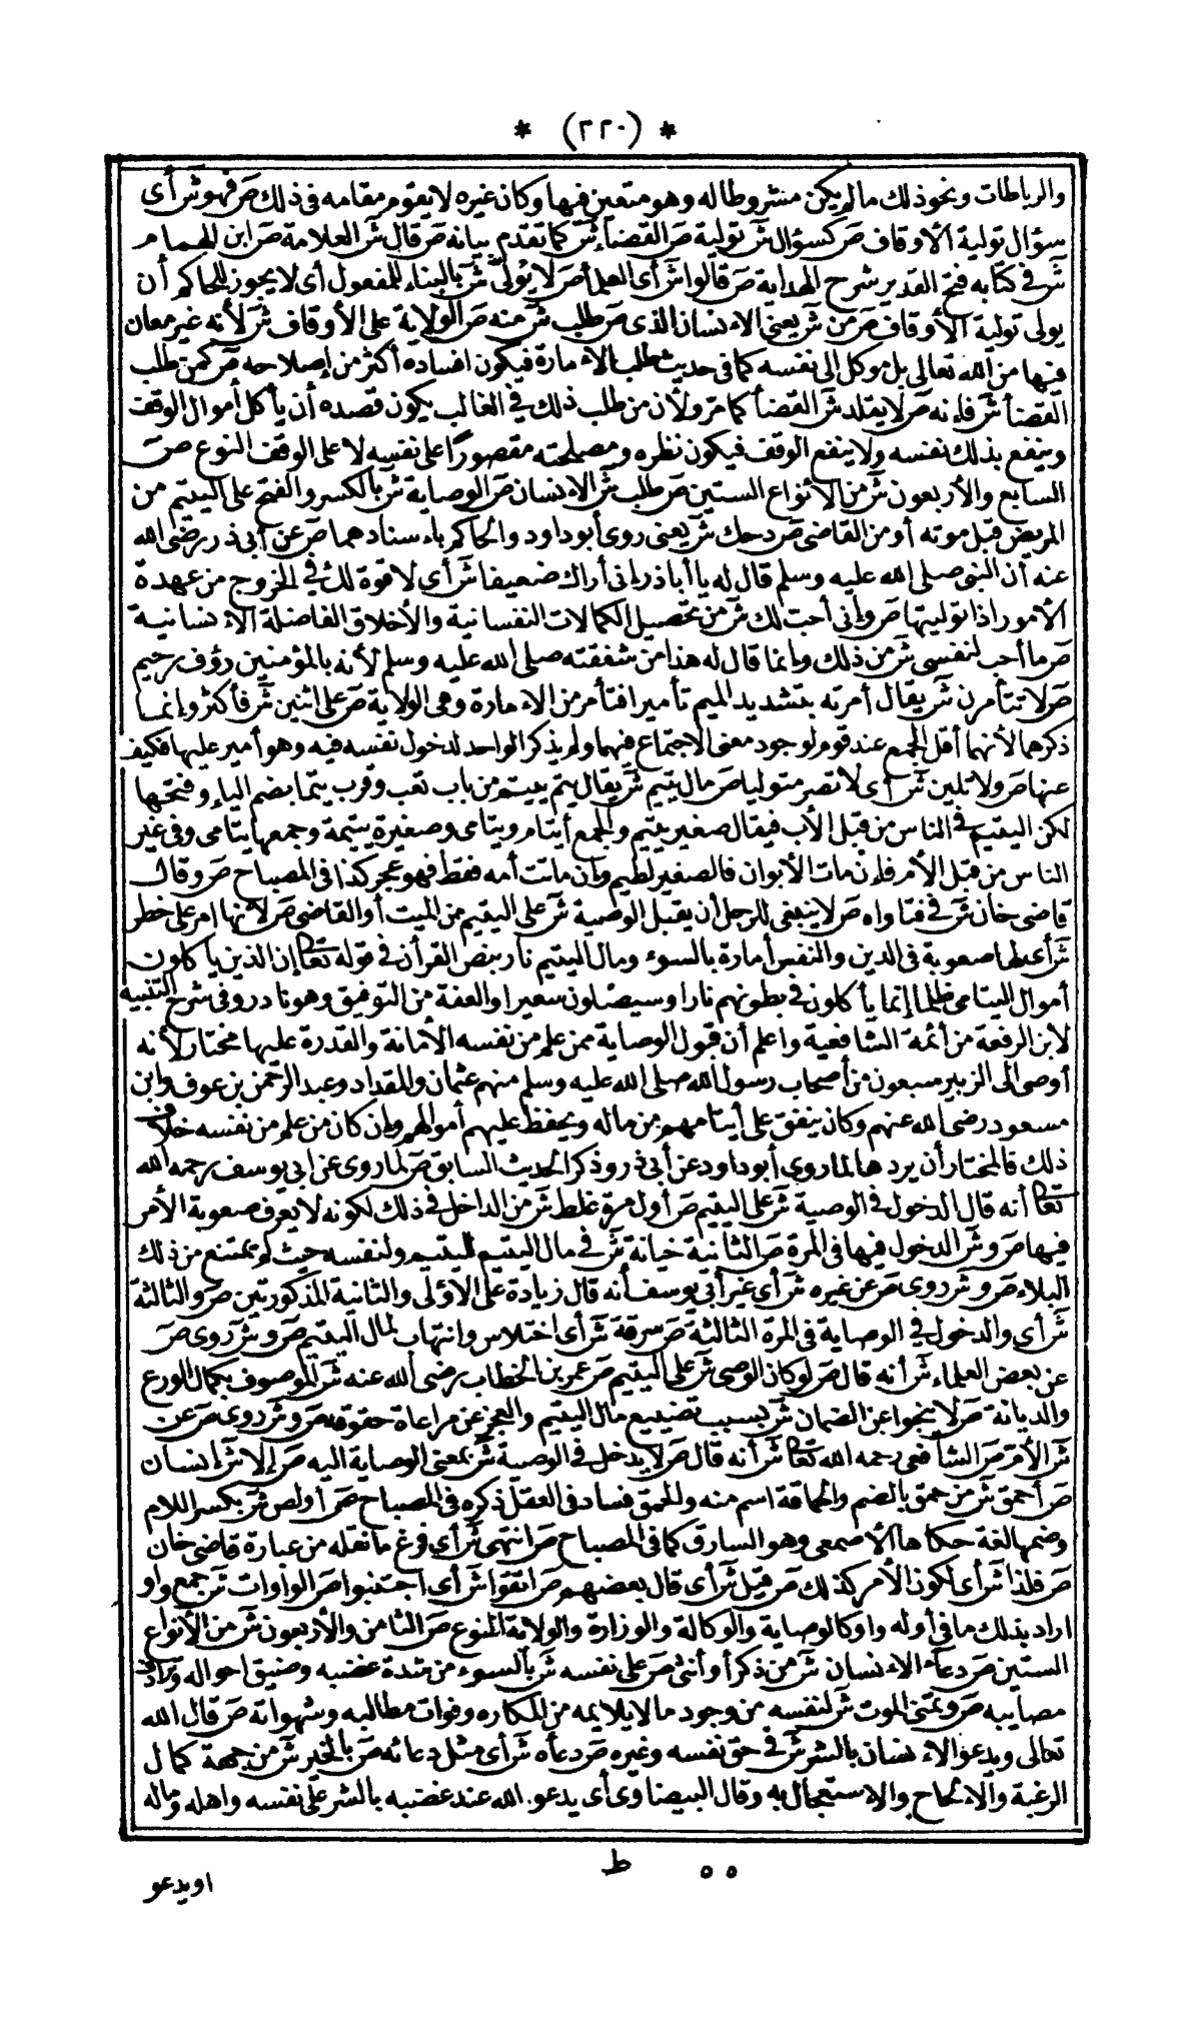 * (٢٢٠) *
والرباطات ونحو ذلك ما لم يكن مشروطا له وهو متعين فيها وكان غيره لا يقوم مقامه في ذلك ص فهو ش أى
سؤال تولية الأوقاف ص كسؤال ش تولية ص القضاء ش كما تقدم بيانه ص قال ش العلامة ص ابن الهمام
ش في كتابه فتح القدير شرح الهداية ص قالوا ش أى العلماء ص لا يُولَّى ش بالبناء للمفعول أى لا يجوز للحاكم أن
يولى تولية الأوقاف ص من ش يعنى الإنسان الذى ص طلب ش منه ص الولاية على الأوقاف ش لأنه غير معان
فيها من الله تعالى بل موكل إلى نفسه كما في حديث طلب الإمارة فيكون افساده أكثر من إصلاحه ص كمن طلب
القضأ ش فإنه ص لا يقلد ش القضأ كما مر ولأن من طلب ذلك في الغالب يكون قصده أن يأكل أموال الوقف
وينفع بذلك نفسه ولا ينفع الوقف فيكون نظره ومصلحته مقصورًا على نفسه لا على الوقف النوع ص
السابع والأربعون ش من الأنواع الستين ص طلب ش الإنسان ص الوصاية ش بالكسر والفتح على اليتيم من
المريض قبل موته أو من القاضى ص د حك ش يعنى روى أبو داود والحاكم بإسنادهما ص عن أبى ذر رضى الله
عنه أن النبى صلى الله عليه وسلم قال له يا أبا ذر إنى أراك ضعيفا ش أى لا قوة لك في الخروج من عهدة
الأمور اذا توليتها ص وإنى أحب لك ش من تحصيل الكمالات النفسانية والأخلاق الفاضلة الإنسانية
ص ما أحب لنفسى ش من ذلك وإنما قال له هذا من شفقته صلى الله عليه وسلم لأنه بالمؤمنين رؤف رحيم
ص لا تتأمرن ش يقال أمرته بتشديد الميم تأميرا فتأمر من الإمارة وهى الولاية ص على اثنين ش فأكثر وإنما
ذكرهما لأنهما أقل الجمع عند قوم ولوجود معنى الاجتماع فيهما ولم يذكر الواحد لدخول نفسه فيه وهو أمير عليها فكيف
عنها ص ولا تلين ش أى لا تصر متوليا ص مال يتيم ش يقال يتم ييتم من باب تعب وقرب يتما بضم الياء وفتحها
لكن اليتيم في الناس من قبل الأب فيقال صغير يتيم والجمع أيتام ويتامى وصغيرة يتيمة وجمعها يتامى وفى غير
الناس من قبل الأم فإن مات الأبوان فالصغير لطيم وإن ماتت أمه فقط فهو عجى كذا فى المصباح ص وقال
قاضى خان ش في فتاواه ص لا ينبغى للرجل أن يقبل الوصية ش على اليتيم من الميت أو القاضى ص لأنها امر على خطر
ش أى لها صعوبة فى الدين والنفس أمارة بالسوء ومال اليتيم نار بنص القرأن في قوله تعا إن الذين يا كلون
أموال اليتامى ظلما إنما يأكلون في بطونهم نارا وسيصلون سعيرا والعفة من التوفيق وهو نادر وفى شرح التنبيه
لابن الرفعة من أئمة الشافعية واعلم أن قبول الوصاية ممن علم من نفسه الأمانة والقدرة عليها مختار لأنه
أوصى الى الزبير سبعون من أصحاب رسول الله صلى الله عليه وسلم منهم عثمان والمقداد وعبد الرحمن بن عوف وابن
مسعود رضى الله عنهم وكان ينفق على أيتامهم من ماله ويحفظ عليهم أموالهم وإن كان من علم من نفسه خلاف
ذلك فالمختار أن يردها لما روى أبو داود عن أبى ذر وذكر الحديث السابق ص لما روى عن ابى يوسف رحمه الله
تعا أنه قال الدخول في الوصية ش على اليتيم ص أول مرة غلط ش من الداخل في ذلك لكونه لا يعرف صعوبة الأمر
فيها ص و ش الدخول فيها فى المرة ص الثانية خيانة ش في مال اليتيم لليتيم ولنفسه حيث لم يمتنع من ذلك
البلاء ص و ش روى ص عن غيره ش أى غير أبى يوسف أنه قال زيادة على الأولى والثانية المذكورتين ص والثالثة
ش أى والدخول في الوصاية فى المرة الثالثة ص سرقة ش أى اختلاس وانتهاب لمال اليتيم ص و ش روى ص
عن بعض العلماء ش أنه قال ص لو كان الوصى ش على اليتيم ص عمر بن الخطاب رضى الله عنه ش الموصوف بكمال الورع
والديانة ص لا ينجو عن الضمان ش بسبب تضييع مال اليتيم والعجز عن مراعاة حقوقه ص و ش روى ص عن
ش الأمام ص الشافعى رحمه الله تعا ش أنه قال ص لا يدخل في الوصية ش بمعنى الوصاية اليه ص إلا ش إنسان
ص أحمق ش من حمق بالضم والحماقة اسم منه والحمق فساد فى العقل ذكره فى المصباح ص أو لص ش بكسر اللام
وضمها لغة حكاها الأصمعى وهو السارق كما فى المصباح ص انتهى ش أى فرغ ما نقله من عبارة قاضى خان
ص فلذا ش أى لكون الأمر كذلك ص قيل ش أى قال بعضهم ص اتقوا ش أى اجتنبوا ص الواوات ش جمع واو
اراد بذلك ما في أوله واو كالوصاية والوكالة والوزارة والولاية النوع ص الثامن والأربعون ش من الأنواع
الستين ص دعاء الإنسان ش من ذكر أو أنثى ص على نفسه ش بالسوء من شدة غضبه وضيق احواله وترادف
مصايبه ص وتمنى الموت ش لنفسه من وجود ما لا يلايمه من المكاره وفوات مطالبه وشهواته ص قال الله
تعالى ويدعو الإنسان بالشر ش في حق نفسه وغيره ص دعاه ش أى مثل دعائه ص بالخير ش من جهة كمال
الرغبة والإلحاح والاستعجال به وقال البيضاوى أى يدعو الله عند غضبه بالشر على نفسه واهله وماله
٥٥ ط
اويدعو